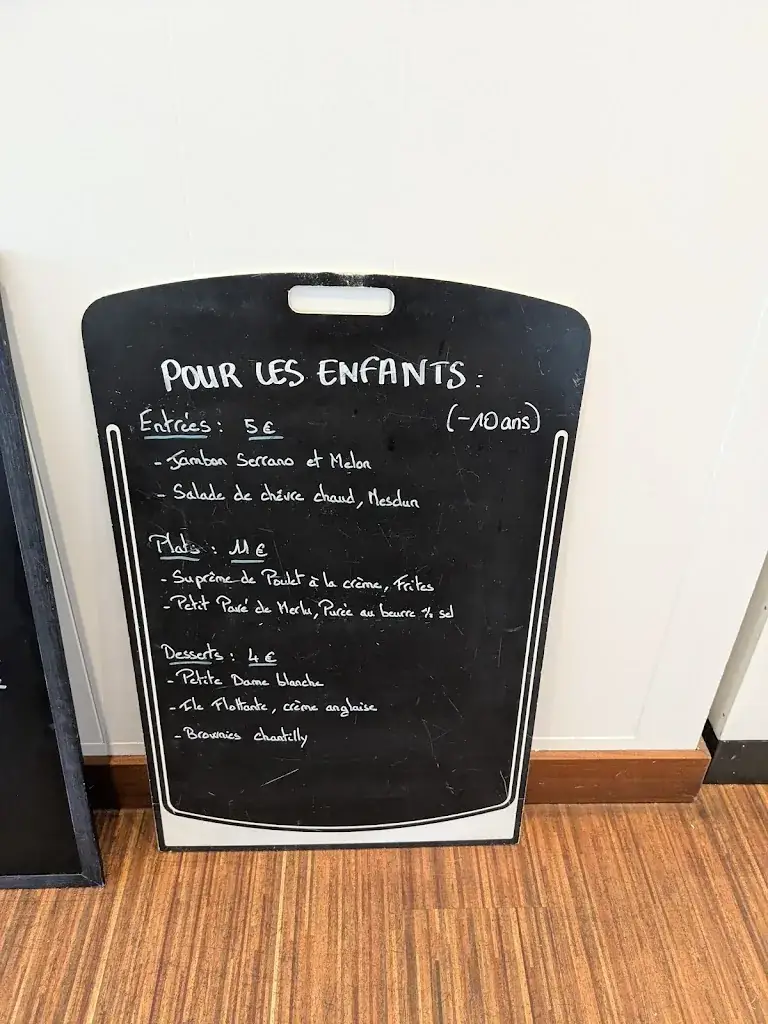 POUR LES ENFANTS :
(-10 ans)
Entrées : 5 €
- Jambon Serrano et Melon
- Salade de chèvre chaud, Mesclun
Plats : 11 €
- Suprême de Poulet à la crème, Frites
- Petit Pavé de Merlu, Purée au beurre ½ sel
Desserts : 4 €
- Petite Dame blanche
- Ile Flottante, crème anglaise
- Brownies chantilly